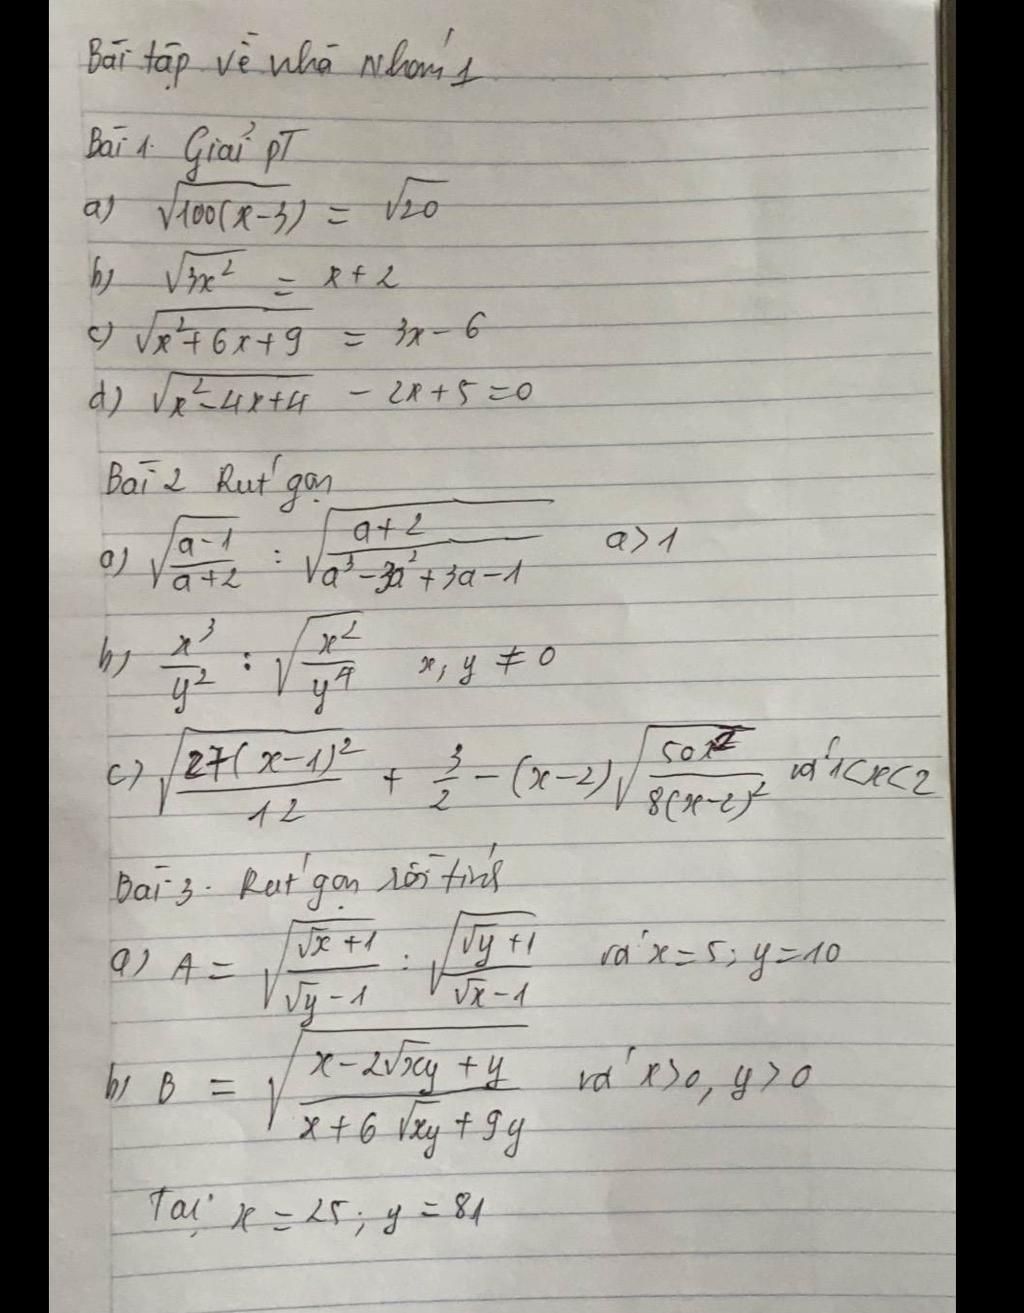 Bài tập về nhà Nhóm 1
Bài 1. Giải PT
a) √(100(x-3)) = √20
b) √(3x²) = x + 2
c) √(x²+6x+9) = 3x - 6
d) √(x²-4x+4) - 2x+5 = 0
Bài 2 Rút gọn
a) √((a-1)/(a+2)) : √((a+2)/(a³-3a²+3a-1)) a>1
b) x³/y² : √(x²/y⁴) x, y ≠ 0
c) √(27(x-1)²/12) + 3/2 - (x-2)√(50x²/(8(x-2)²)) với 1<x<2
Bài 3. Rút gọn rồi tính
a) A = √((√x+1)/(√y-1)) : √((√y+1)/(√x-1)) với x=5; y=10
b) B = √((x-2√xy+y)/(x+6√xy+9y)) với x>0, y>0
Tại x = 25; y = 81